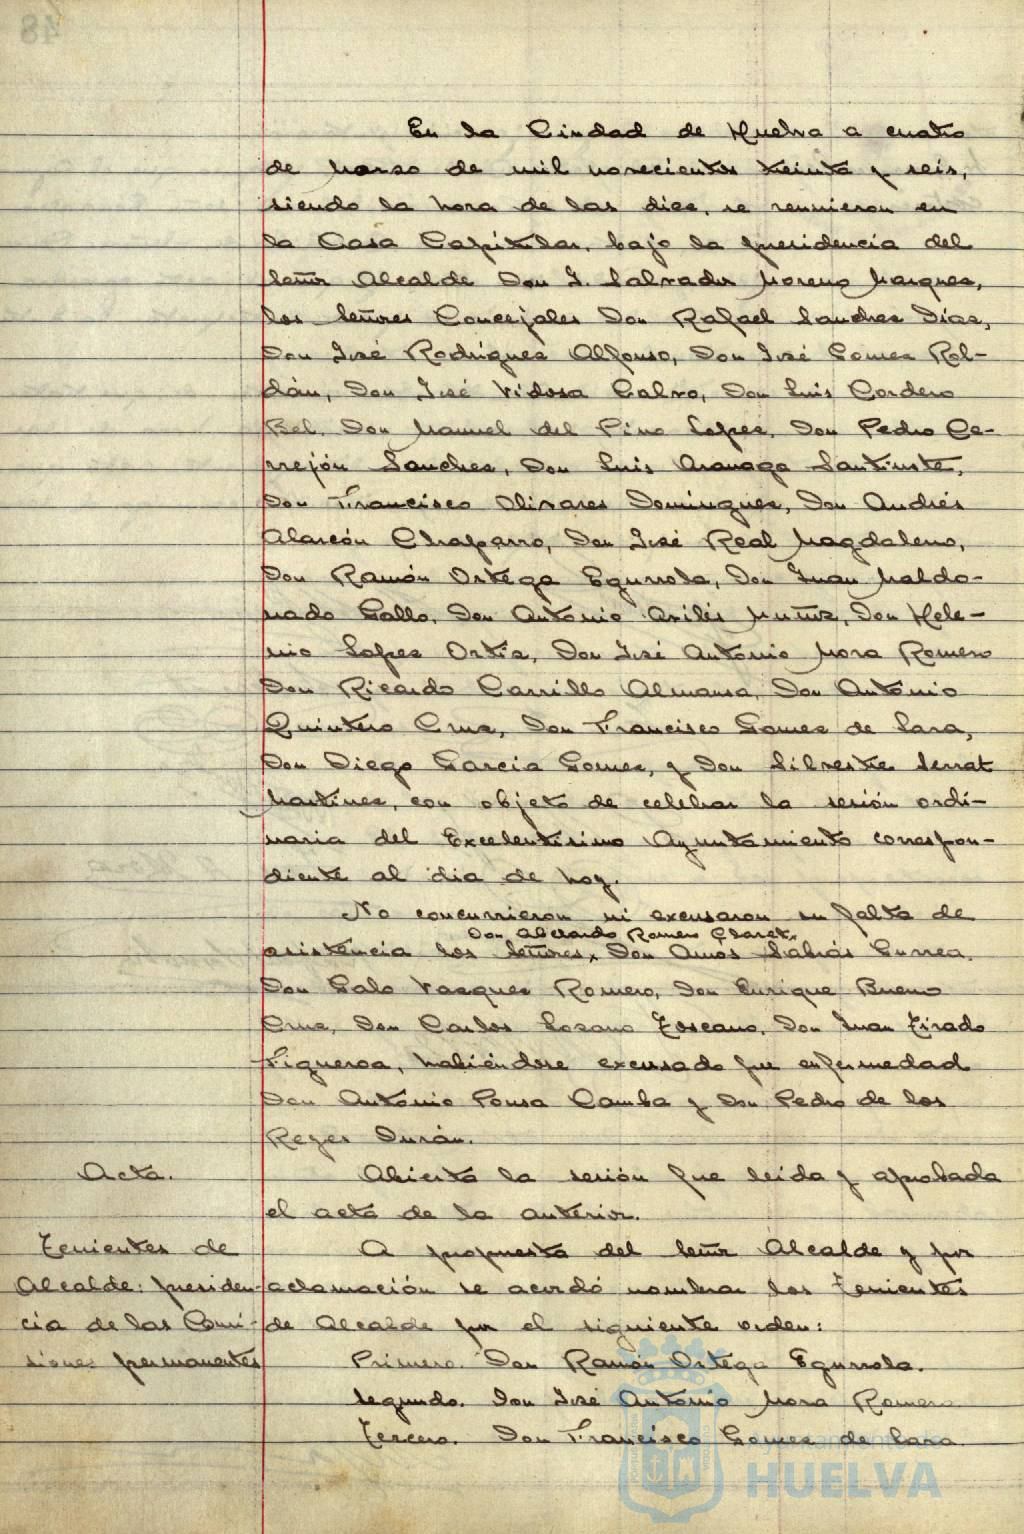 48
En la Ciudad de Huelva a cuatro
de Marzo de mil novecientos treinta y seis,
siendo la hora de las diez, se reunieron en
la Casa Capitular, bajo la presidencia del
Señor Alcalde Don J. Salvador Moreno Marquez,
los Señores Concejales Don Rafael Sanchez Díaz,
Don José Rodriguez Alfonso, Don José Gomez Rol-
dán, Don José Vidosa Calvo, Don Luis Cordero
Bel, Don Manuel del Pino Lopez, Don Pedro Ce-
rrejón Sanchez, Don Luis Aranaga Santiuste,
Don Francisco Olivares Dominguez, Don Andrés
Alarcón Chaparro, Don José Real Magdaleno,
Don Ramón Ortega Egurrola, Don Juan Maldo-
nado Gallo, Don Antonio Avilés Muñoz, Don Hele-
nio Lopez Ortiz, Don José Antonio Mora Romero
Don Ricardo Carrillo Almansa, Don Antonio
Quintero Cruz, Don Francisco Gomez de Lara,
Don Diego García Gomez, y Don Silvestre Serrat
Martinez, con objeto de celebrar la sesión ordi-
naria del Excelentísimo Ayuntamiento correspon-
diente al día de hoy.
No concurrieron ni excusaron su falta de
Don Abelardo Romero Claret,
asistencia los Señores, Don Amos Sabrás Gurrea,
Don Galo Vazquez Romero, Don Enrique Bueno
Cruz, Don Carlos Lozano Toscano, Don Juan Tirado
Figueroa, habiéndose excusado por enfermedad
Don Antonio Pousa Camba y Don Pedro de los
Reyes Durán.
Acta.
Abierta la sesión fue leída y aprobada
el acta de la anterior.
Tenientes de
Alcalde: presiden-
cia de las Comi-
siones permanentes
A propuesta del Señor Alcalde y por
aclamación se acordó nombrar los Tenientes
de Alcalde por el siguiente orden:
Primero. Don Ramón Ortega Egurrola.
Segundo. Don José Antonio Mora Romero
Tercero. Don Francisco Gomez de Lara
HUELVA